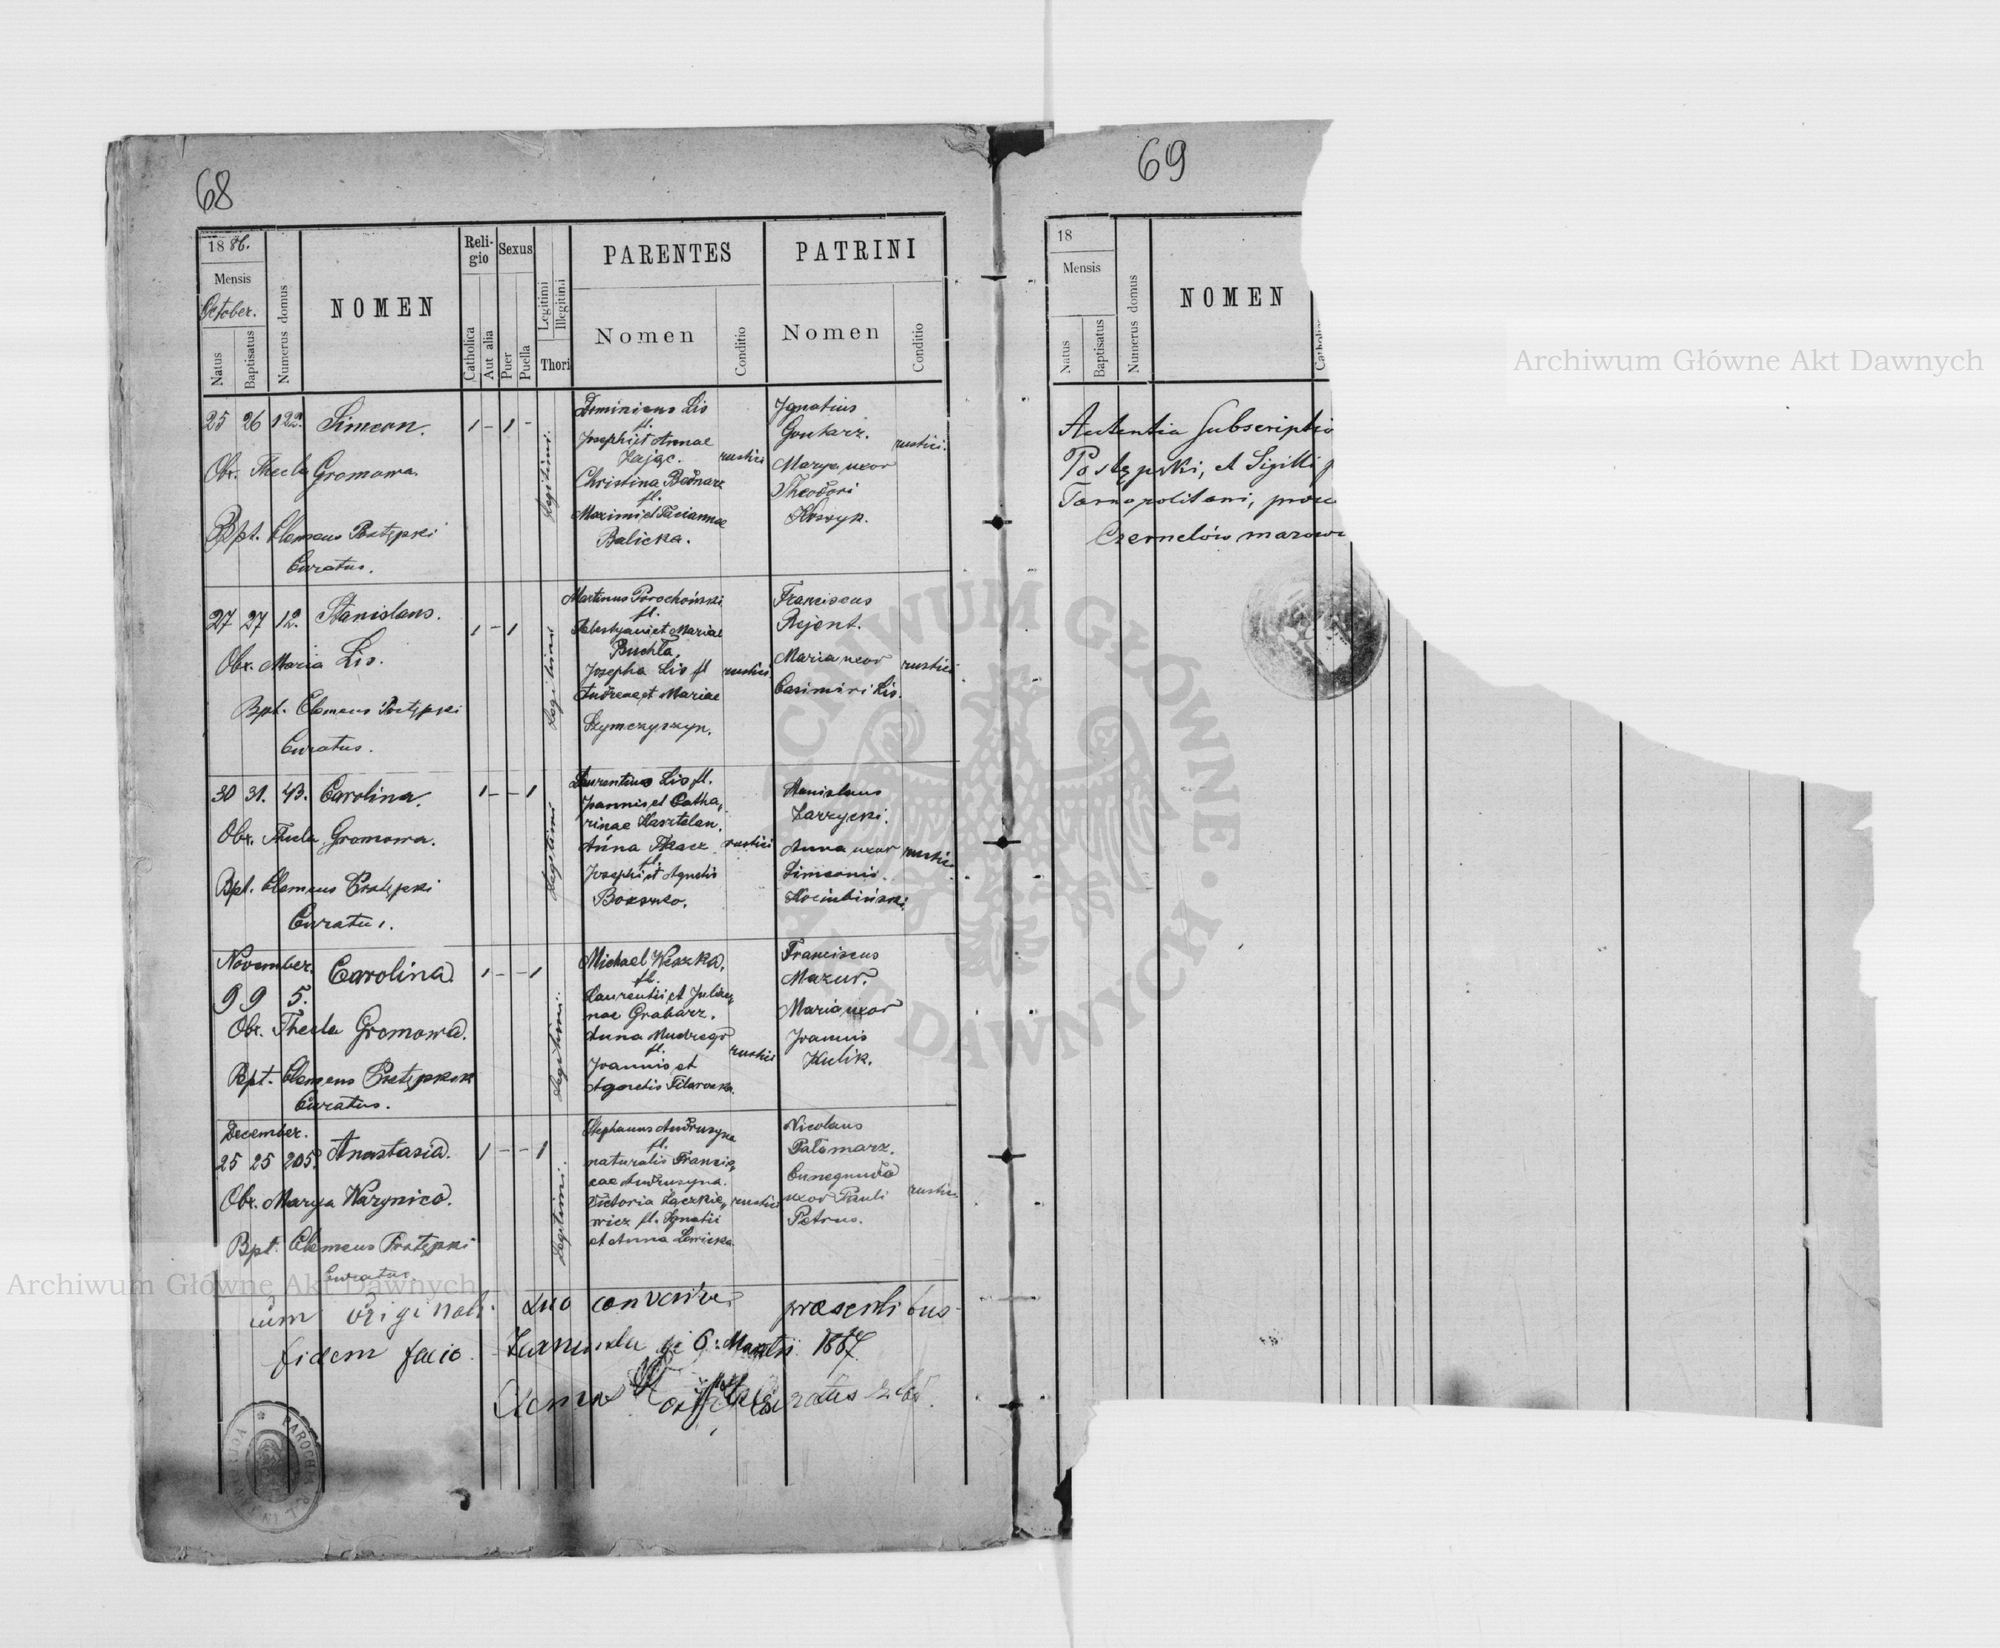 68
1886.
Mensis
October.
Natus
Baptisatus
Numerus domus
NOMEN
Reli-
gio
Catholica
Aut alia
Sexus
Puer
Puella
Legitimi
Illegitimi
Thori
PARENTES
Nomen
Conditio
PATRINI
Nomen
Conditio
25 26 122. Simeon. 1 - 1 -
Obs. Thecla Gromowa.
Bpt. Clemens Postępski
Curatus.
Legitimi.
Dominicus Lis
fl.
Josephi et Annae
Zając.
Christina Bednarz
fl.
Maximi et Taciannae
Balicka.
rustici
Ignatius
Gontarz.
Marya uxor
Theodori
rustici.
27 27 12. Stanislaus. 1 - 1
Obs. Maria Lis.
Bpt. Clemens Postępski
Curatus.
Legitimi
Martinus Porochoński
fl.
Sebestyani et Mariae
Buchta,
Josepha Lis fl
Andreae et Mariae
Szymczyszyn.
rustici
Franciscus
Rejent.
Maria uxor
Casimiri Lis.
rustici
30 31. 43. Carolina. 1 - - 1
Obs. Thecla Gromowa.
Bpt. Clemens Postępski
Curatus.
Legitimi
Laurentius Lis fl.
Joannis et Catha-
rinae Kasztelan.
Anna Tkacz
fl.
Josephi et Agnetis
rustici
Stanislaus
Zarzycki.
Anna uxor
Simeonis
rustici
November.
9 9 5. Carolina. 1 - - 1
Obs. Thecla Gromowa.
Bpt. Clemens Postępski
Curatus.
Legitimi.
Michael
fl.
Laurentii et Julian-
nae Grabarz.
Anna
fl.
Joannis et
Agnetis
rustici
Franciscus
Mazur.
Maria uxor
Joannis
Kulik.
December.
25 25 205. Anastasia. 1 - - 1
Obs. Marya
Bpt. Clemens Postępski
Curatus.
Legitimi.
Stephanus Andruszyna
fl.
naturalis Francis-
cae Andruszyna.
Victoria Łaczkie-
wicz fl. Ignatii
et Anna
rustici
Nicolaus
Palamarz.
Cunegunda
uxor Pauli
Petrus.
rustici
cum originali duo convenire praesentibus
fidem facio. 6: Martii 1887.
Clemens
PAROCHIA
69
18
Mensis
Natus
Baptisatus
Numerus domus
NOMEN
Catholica
Autentia Subscriptio
Postępski, et Sigilli
Tarnopolitani,
Czernelów mazow
Archiwum Główne Akt Dawnych
Archiwum Główne Akt Dawnych
ARCHIWUM GŁÓWNE AKT DAWNYCH